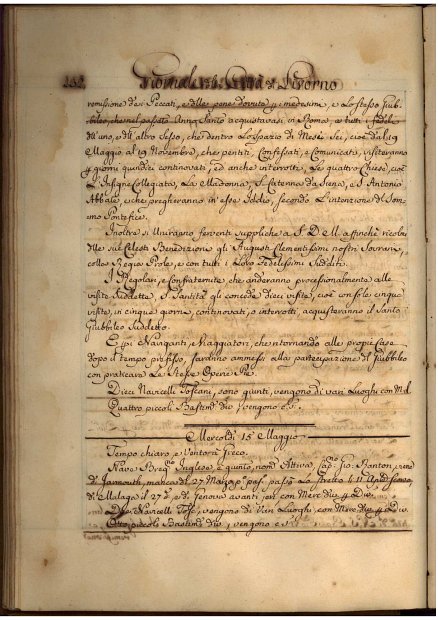 132. Giornale della Città di Livorno
remissione de i Peccati, e delle pene dovute p i medesimi, e Lo stesso Giub-
bileo, che nel passato Anno Santo acquistavasi in Roma, a tutti i fedeli
dell'uno, e dell'altro Sesso, che dentro Lo spazio di Mesi Sei, cioè da i 19
Maggio al 19 Novembre, che pentiti, Confessati, e Comunicati, visiteranno
p giorni quindici continovati, od anche interrotti, Le quattro Chiese, cioè
L'Insigne Collegiata, La Madonna, S. Caterina da Siena, e S. Antonio
Abbate, e che pregheranno in esse Iddio, secondo L'intenzione del Som-
mo Pontefice.
Inoltre si Umirano ferventi suppliche a S. D. M. affinchè ricolmi
delle sue Celesti Benedizioni gli Augusti Clementissimi nostri Sovrani,
colla Regia Prole, e con tutti i Loro Fedelissimi Sudditi.
I Regolari, e Confraternite che anderanno processionalmente alle
visite Suddette, S. Santità gli concede dieci visite, cioè con sole cinque
visite, in cinque giorni, continovati, o interotti, acquisteranno il Santo
Giubbileo Suddetto.
E i pi Naviganti, e Viaggiatori, che ritornando alle proprie Case
dopo il tempo prefisso, saranno ammessi alla partecipazione del Giubbileo
con praticare Le Stesse Opere Pie.
Dieci Navicelli Toscani, sono giunti, vengono di vari Luoghi con M.
Quattro piccoli Bastim. div. vengono e S.
Mercoldì 15 Maggio
Tempo chiaro, e Vento Greco.
Nave Breg.no Inglese, è giunto, nom. Attiva, Cap.no Gio: Ranton, viene
di Jarmouth, manca di 27 Marzo p. pas. passò Lo stretto li 11 Aprile
di Malaga il 27 d. e di Genova avanti jeri con Merc. div. p Div.
Dieci Navicelli Tosc. vengono di Vari Luoghi, con Merc. div. p Div.
Otto piccoli Bastim. div. vengono e S.